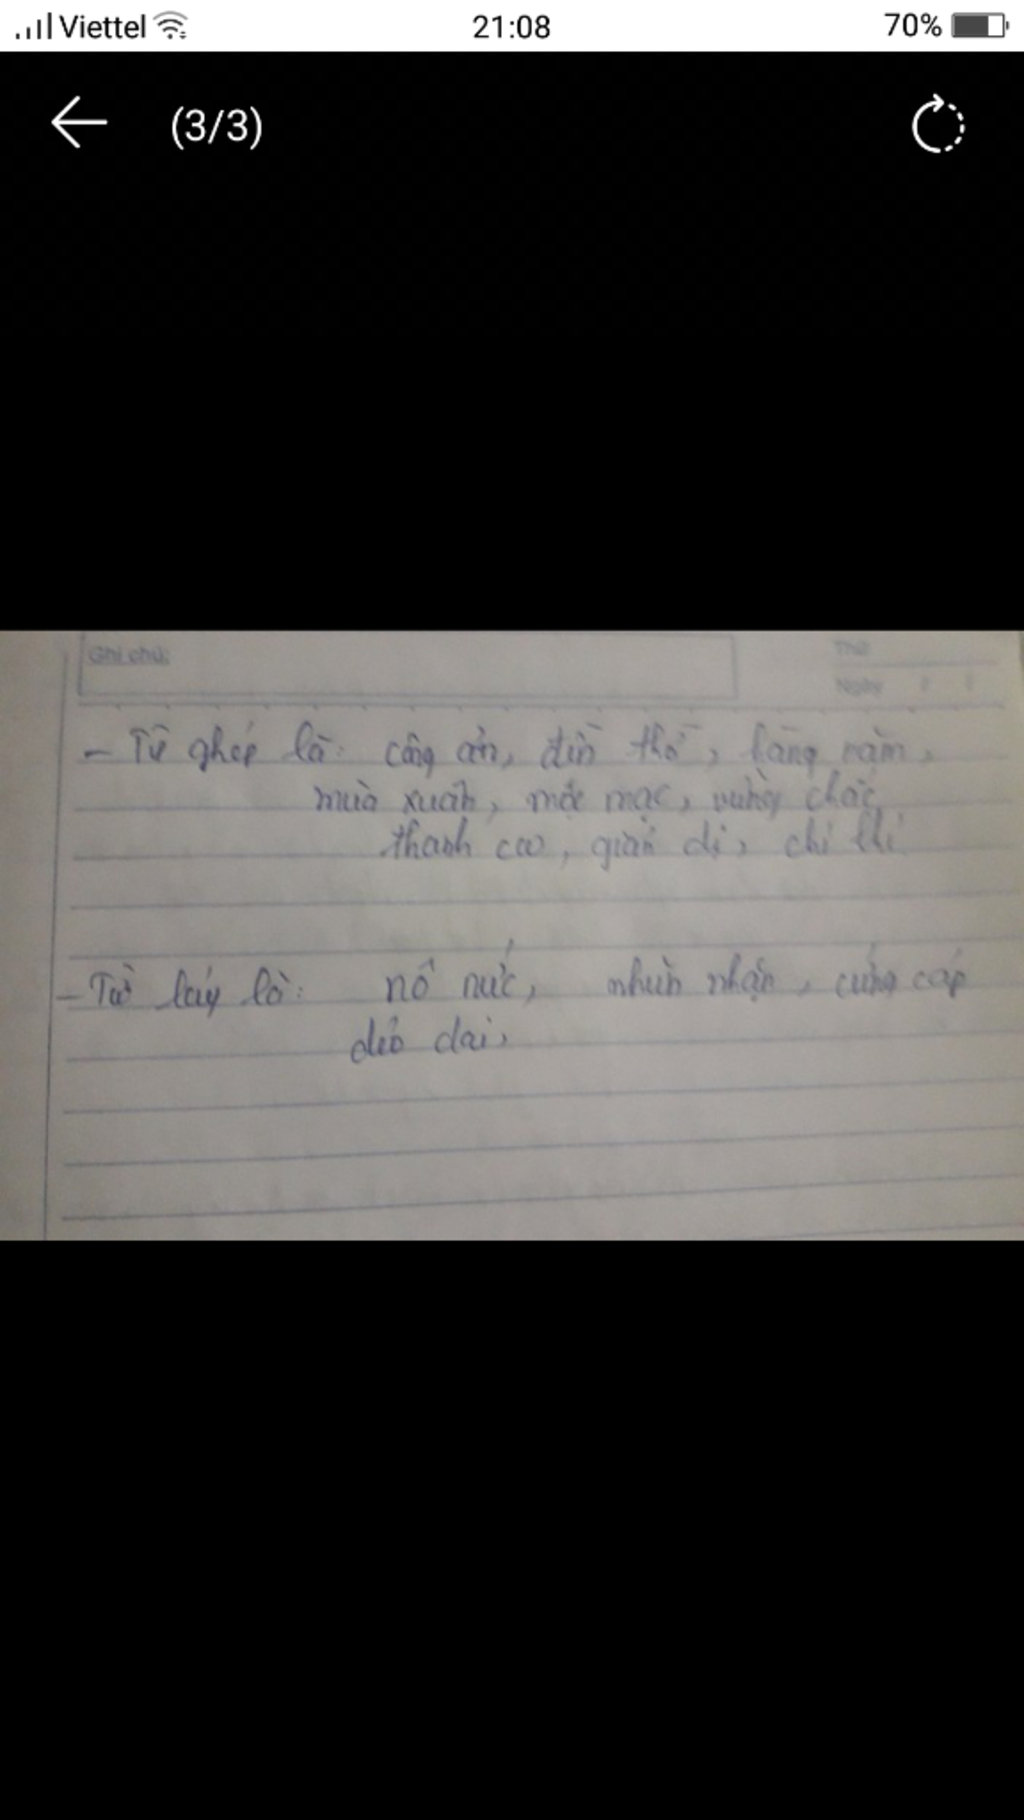 Viettel 21:08 70%
(3/3)
Ghi chú:
Thứ
Ngày
- Từ ghép là: công ơn, đền thờ, hằng năm,
mùa xuân, mộc mạc, vững chắc,
thanh cao, giản dị, chí khí
- Từ láy là: nô nức, nhũn nhặn, cứng cáp
dẻo dai,